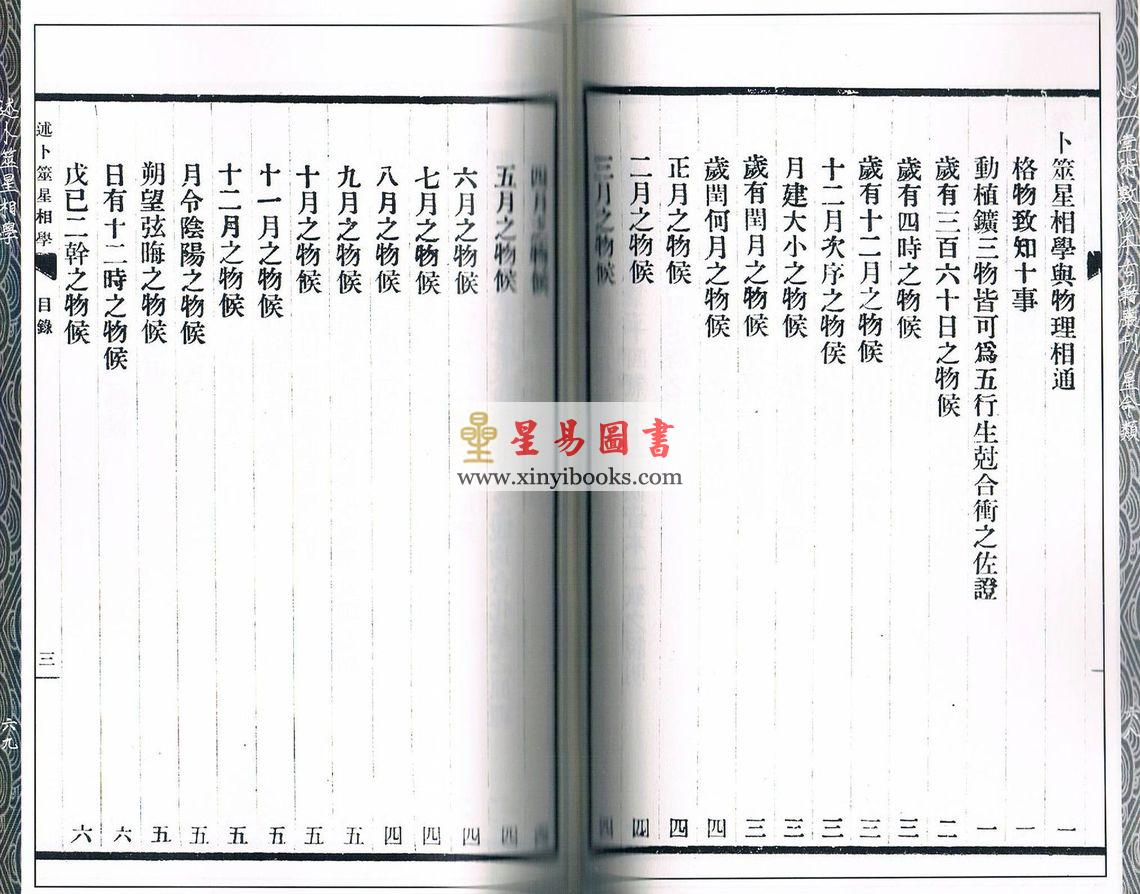 卜筮星相學與物理相通 一
格物致知十事 一
動植鑛三物皆可為五行生尅合衝之佐證 一
歲有三百六十日之物候 二
歲有四時之物候 三
歲有十二月之物候 三
十二月次序之物候 三
月建大小之物候 三
歲有閏月之物候 三
歲閏何月之物候 四
正月之物候 四
二月之物候 四
三月之物候 四
四月之物候 四
五月之物候 四
六月之物候 四
七月之物候 四
八月之物候 四
九月之物候 五
十月之物候 五
十一月之物候 五
十二月之物候 五
月令陰陽之物候 五
朔望弦晦之物候 五
日有十二時之物候 六
戊已二幹之物候 六
述卜筮星相學 目錄 三
述卜筮星相學 六九
星易圖書
www.xinyibooks.com